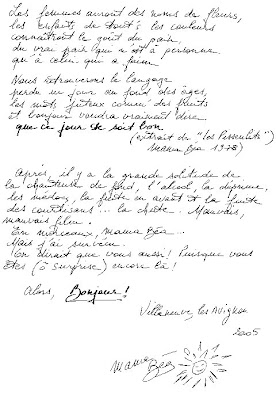 Les femmes auront des noms de fleurs,
les enfants de toutes les couleurs
connaîtront le goût du pain
du vrai pain qui n'est à personne
qu'à celui qui a faim
Nous retrouverons le langage
perdu un jour au fond des âges,
les mots juteux comme des fruits
et bonjour voudra vraiment dire
que ce jour te soit bon
(extrait de "les Possédés")
Mama Béa 1978)
Après, il y a la grande solitude de
la chanteuse de fond, l'alcool, la déprime,
les médocs, la fuite en avant et la fuite
des courtisans... la chute. Mauvais,
mauvais film.
En morceaux, Mama Béa...
Mais j'ai survécu.
On dirait que vous aussi! Puisque vous
êtes (ô surprise) encore là!
Alors, Bonjour!
Villeneuve les Avignon
2005
Mama
Béa